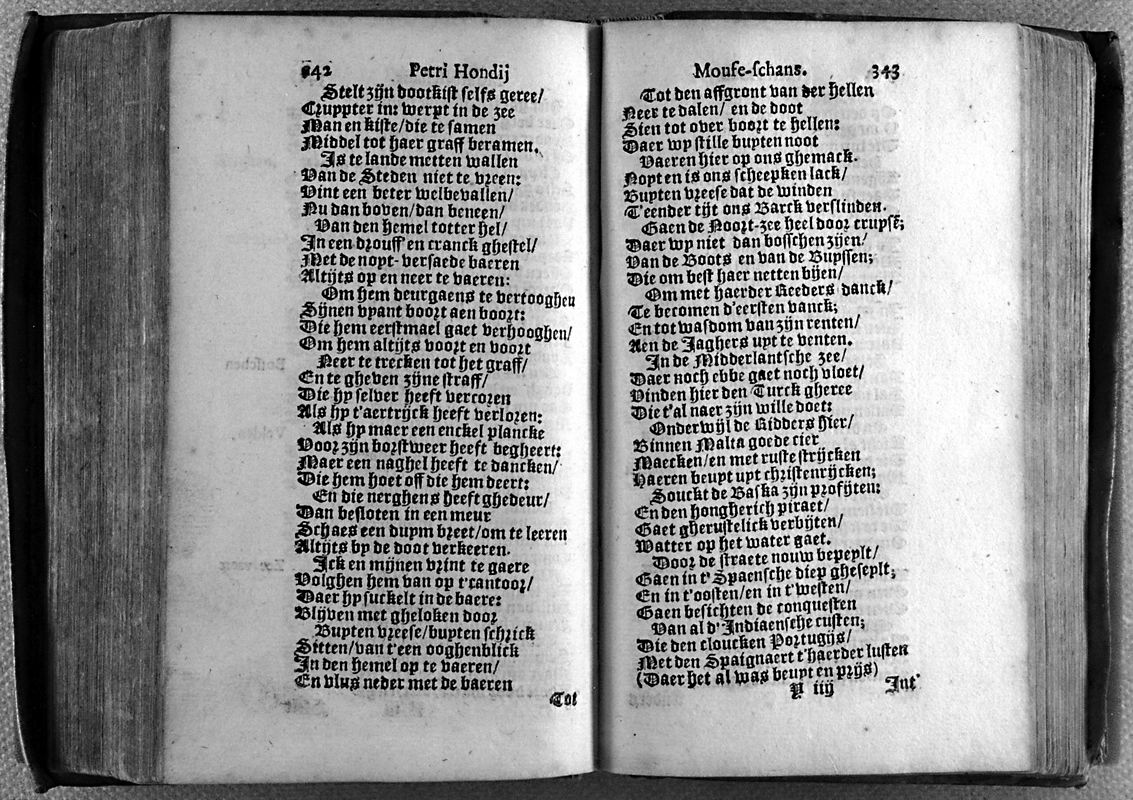 342 Petri Hondij
Stelt zijn dootkist selfs geree/
Cruypter in: werpt in de zee
Man en kiste/die te samen
Middel tot haer graff beramen.
Is te lande metten wallen
Van de Steden niet te vreen:
Vint een beter welbevallen/
Nu dan boven/dan beneen/
Van den hemel totter hel/
In een drouff en cranck ghestel/
Met de noyt-versaede baeren
Altijts op en neer te vaeren:
Om hem deurgaens te vertooghen
Sijnen vyant boort aen boort:
Die hem eerstmael gaet verhooghen/
Om hem altijts voort en voort
Neer te trecken tot het graff/
En te gheven zijne straff/
Die hy selver heeft vercoren
Als hy t'aertrijck heeft verloren:
Als hy maer een enckel plancke
Voor zijn borstweer heeft begheert:
Maer een naghel heeft te dancken/
Die hem hoet off die hem deert:
En die nerghens heeft ghedeur/
Dan besloten in een meur
Schaes een duym breet/om te leeren
Altijts by de doot verkeeren.
Ick en mijnen vrint te gaere
Volghen hem van op t'cantoor/
Daer hy suckelt in de baere:
Blijven met gheloken door
Buyten vreese/buyten schrick
Sitten/van t'een ooghenblick
In den hemel op te vaeren/
En vlus neder met de baeren
Tot
Mouse-schans. 343
Tot den affgront van der hellen
Neer te dalen/ en de doot
Sien tot over boort te hellen:
Daer wy stille buyten noot
Vaeren hier op ons ghemack.
Noyt en is ons scheepken lack/
Buyten vreese dat de winden
T'eender tijt ons Barck verslinden.
Gaen de Noort-zee heel door cruysē;
Daer wy niet dan bosschen zijen/
Van de Boots en van de Buyssen;
Die om best haer netten bijen/
Om met haerder Reeders danck/
Te becomen d'eersten vanck;
En tot wasdom van zijn renten/
Aen de Jaghers uyt te venten.
In de Midderlantsche zee/
Daer noch ebbe gaet noch vloet/
Vinden hier den Turck gheree
Die t'al naer zijn wille doet:
Onderwijl de Ridders hier/
Binnen Malta goede cier
Maecken/en met ruste strijcken
Haeren beuyt uyt christenrijcken;
Souckt de Baska zijn profijten:
En den hongherich piraet/
Gaet gherustelick verbijten/
Watter op het water gaet.
Door de straete nouw bepeylt/
Gaen in t'Spaensche diep gheseylt;
En in t'oosten/en in t'westen/
Gaen besichten de conquesten
Van al d'Indiaensche custen;
Die den cloucken Portugijs/
Met den Spaignaert t'haerder lusten
(Daer het al was beuyt en prijs)
Y iij Int'